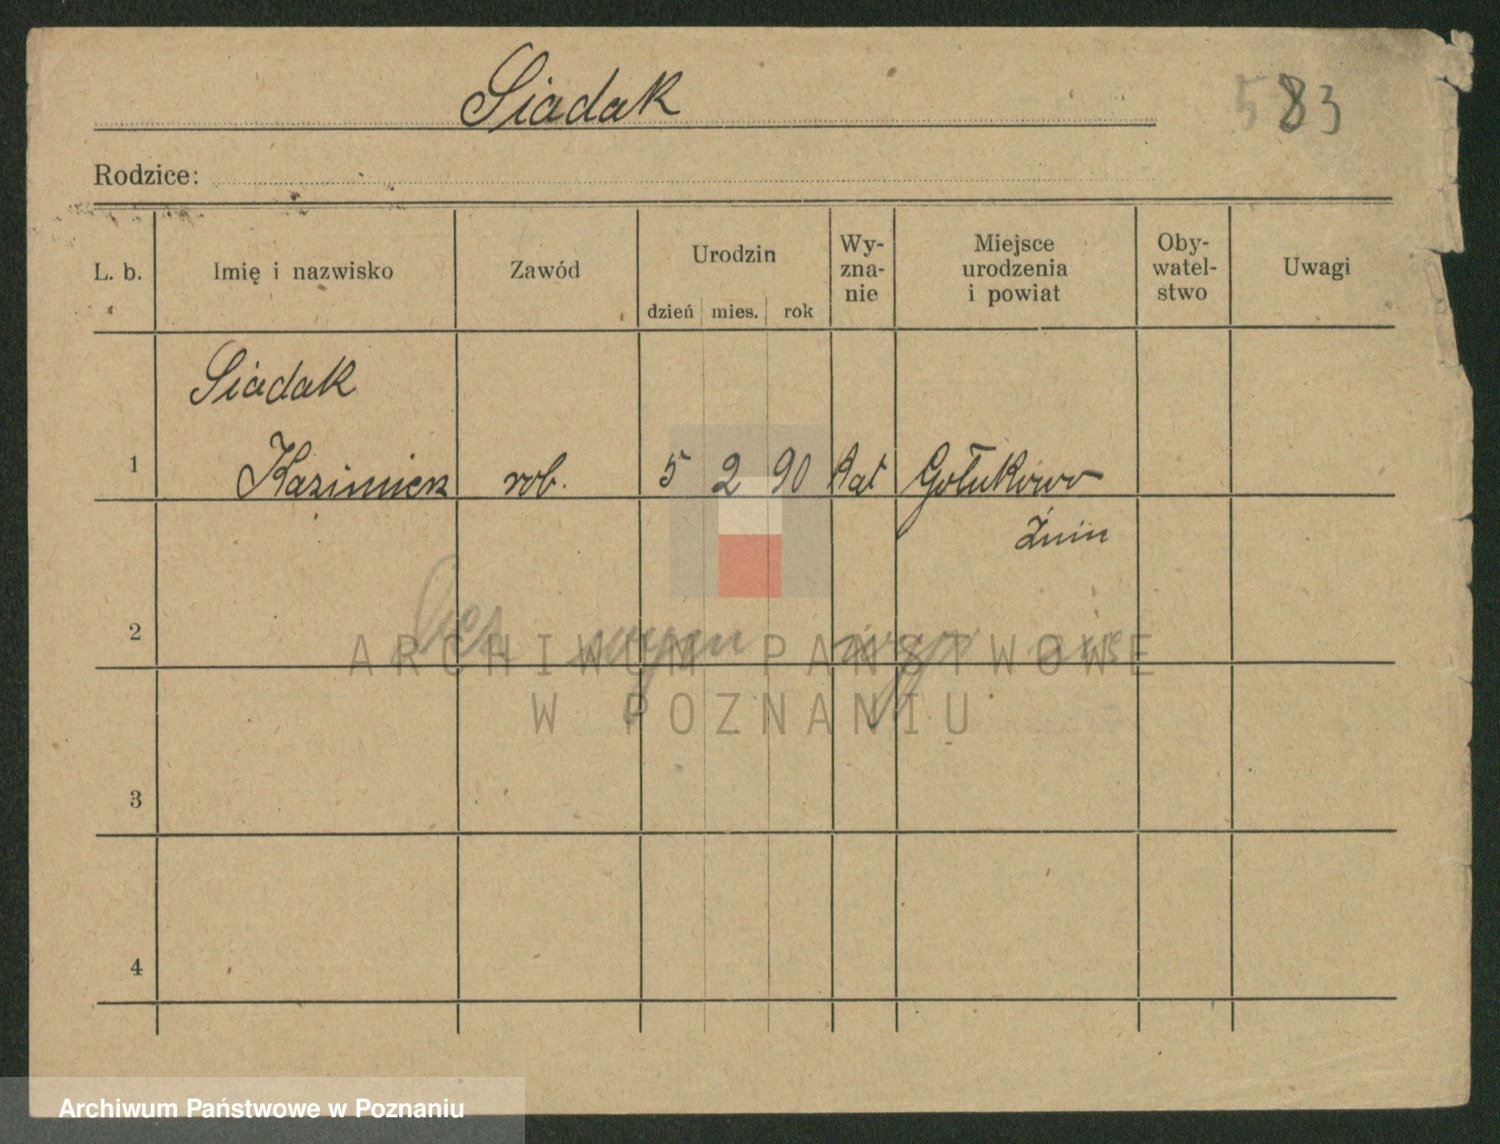 Siadak
583
Rodzice:
L. b. Imię i nazwisko Zawód Urodzin Wy-zna-nie Miejsce urodzenia i powiat Oby-watel-stwo Uwagi
dzień mies. rok
Siadak
1 Kazimierz rob. 5 2 90 kat Gołukowo
Żnin
2
ARCHIWUM PAŃSTWOWE
W POZNANIU
3
4
Archiwum Państwowe w Poznaniu